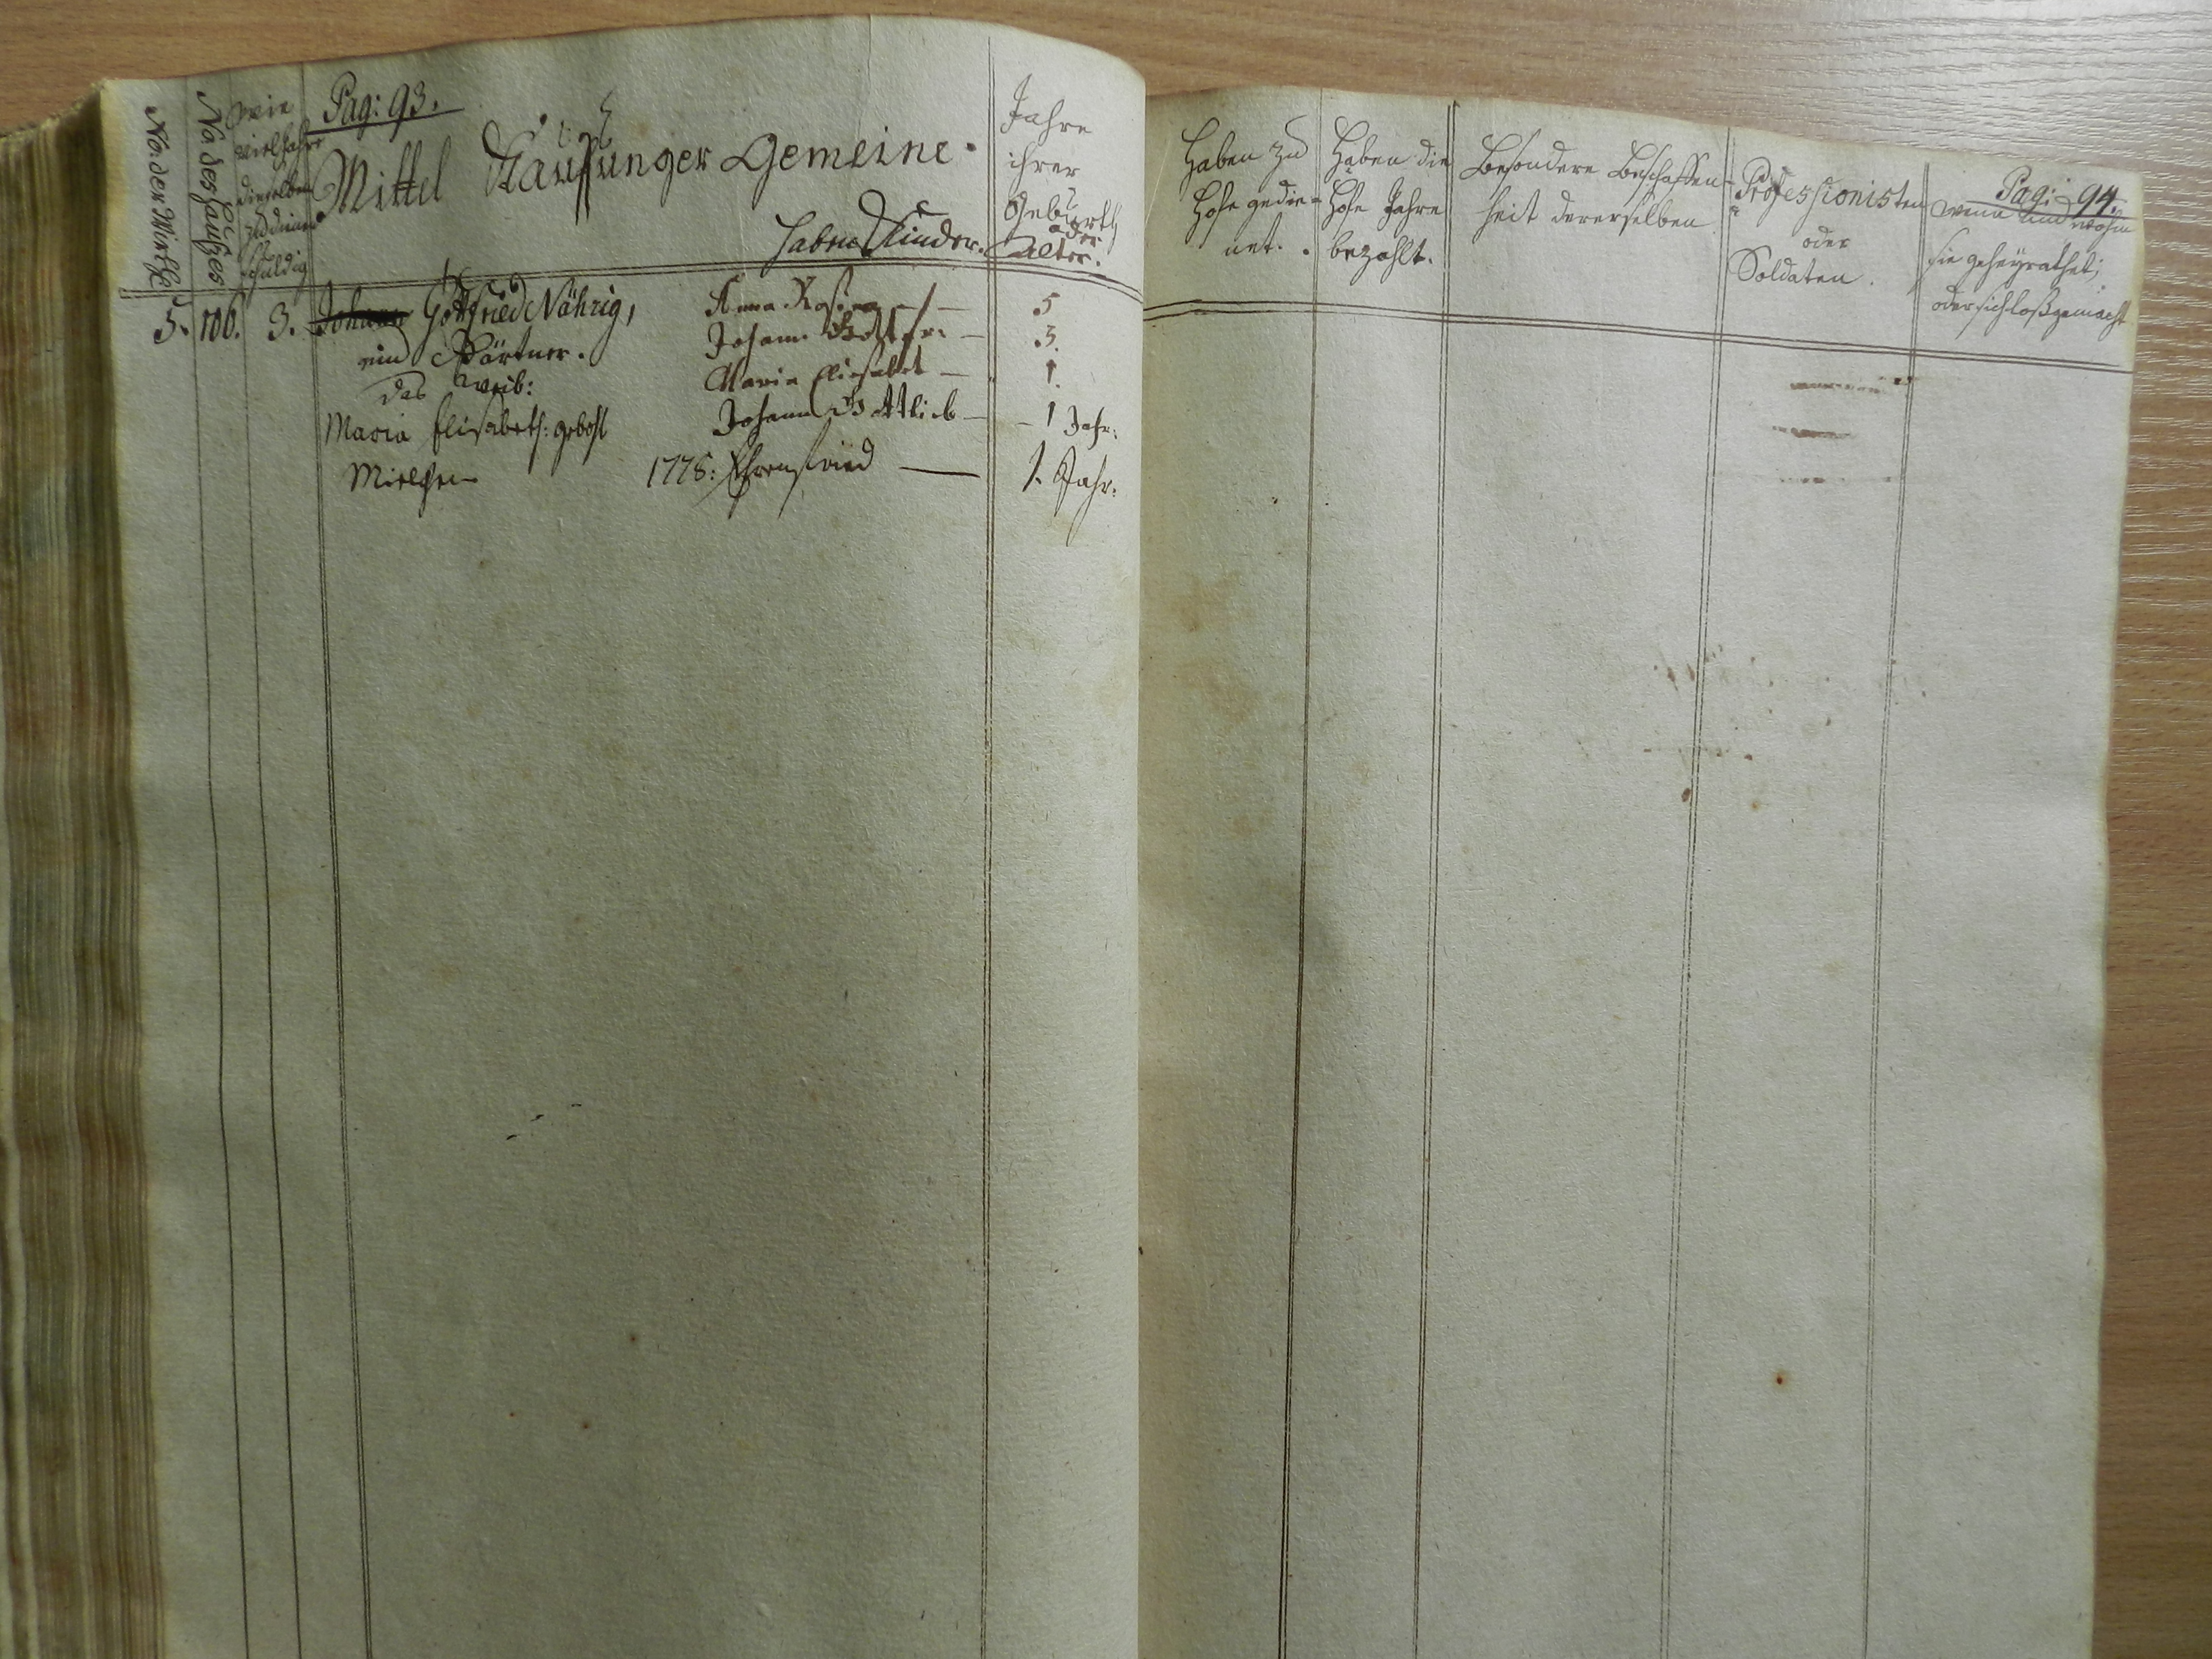 Pag: 93.
No. der Wirthe
No. des Haußes
wie
viel Jahre
dieselben
zu dienen
schuldig
Mittel Kauffunger Gemeine.
haben Kinder.
Jahre
ihrer
Geburth
oder
Alter.
5. 106. 3. Johann Gottfried Nährig,
ein Gärtner.
das Weib:
Maria Elisabeth: gebohl
Anna Rosina — 5
Johann Gottfr: — 3.
Maria Elisabet — 1.
Johann Gottlieb — 1 Jahr:
1778: Ehrenfried — 1. Jahr:
Pag: 94.
Haben zu
Hofe gedie-
net.
Haben die
Hofe Jahre
bezahlt.
Besondere Beschaffen-
heit dererselben
Professionisten
oder
Soldaten.
wenn und wohin
sie geheyrathet;
oder sich loßgemacht